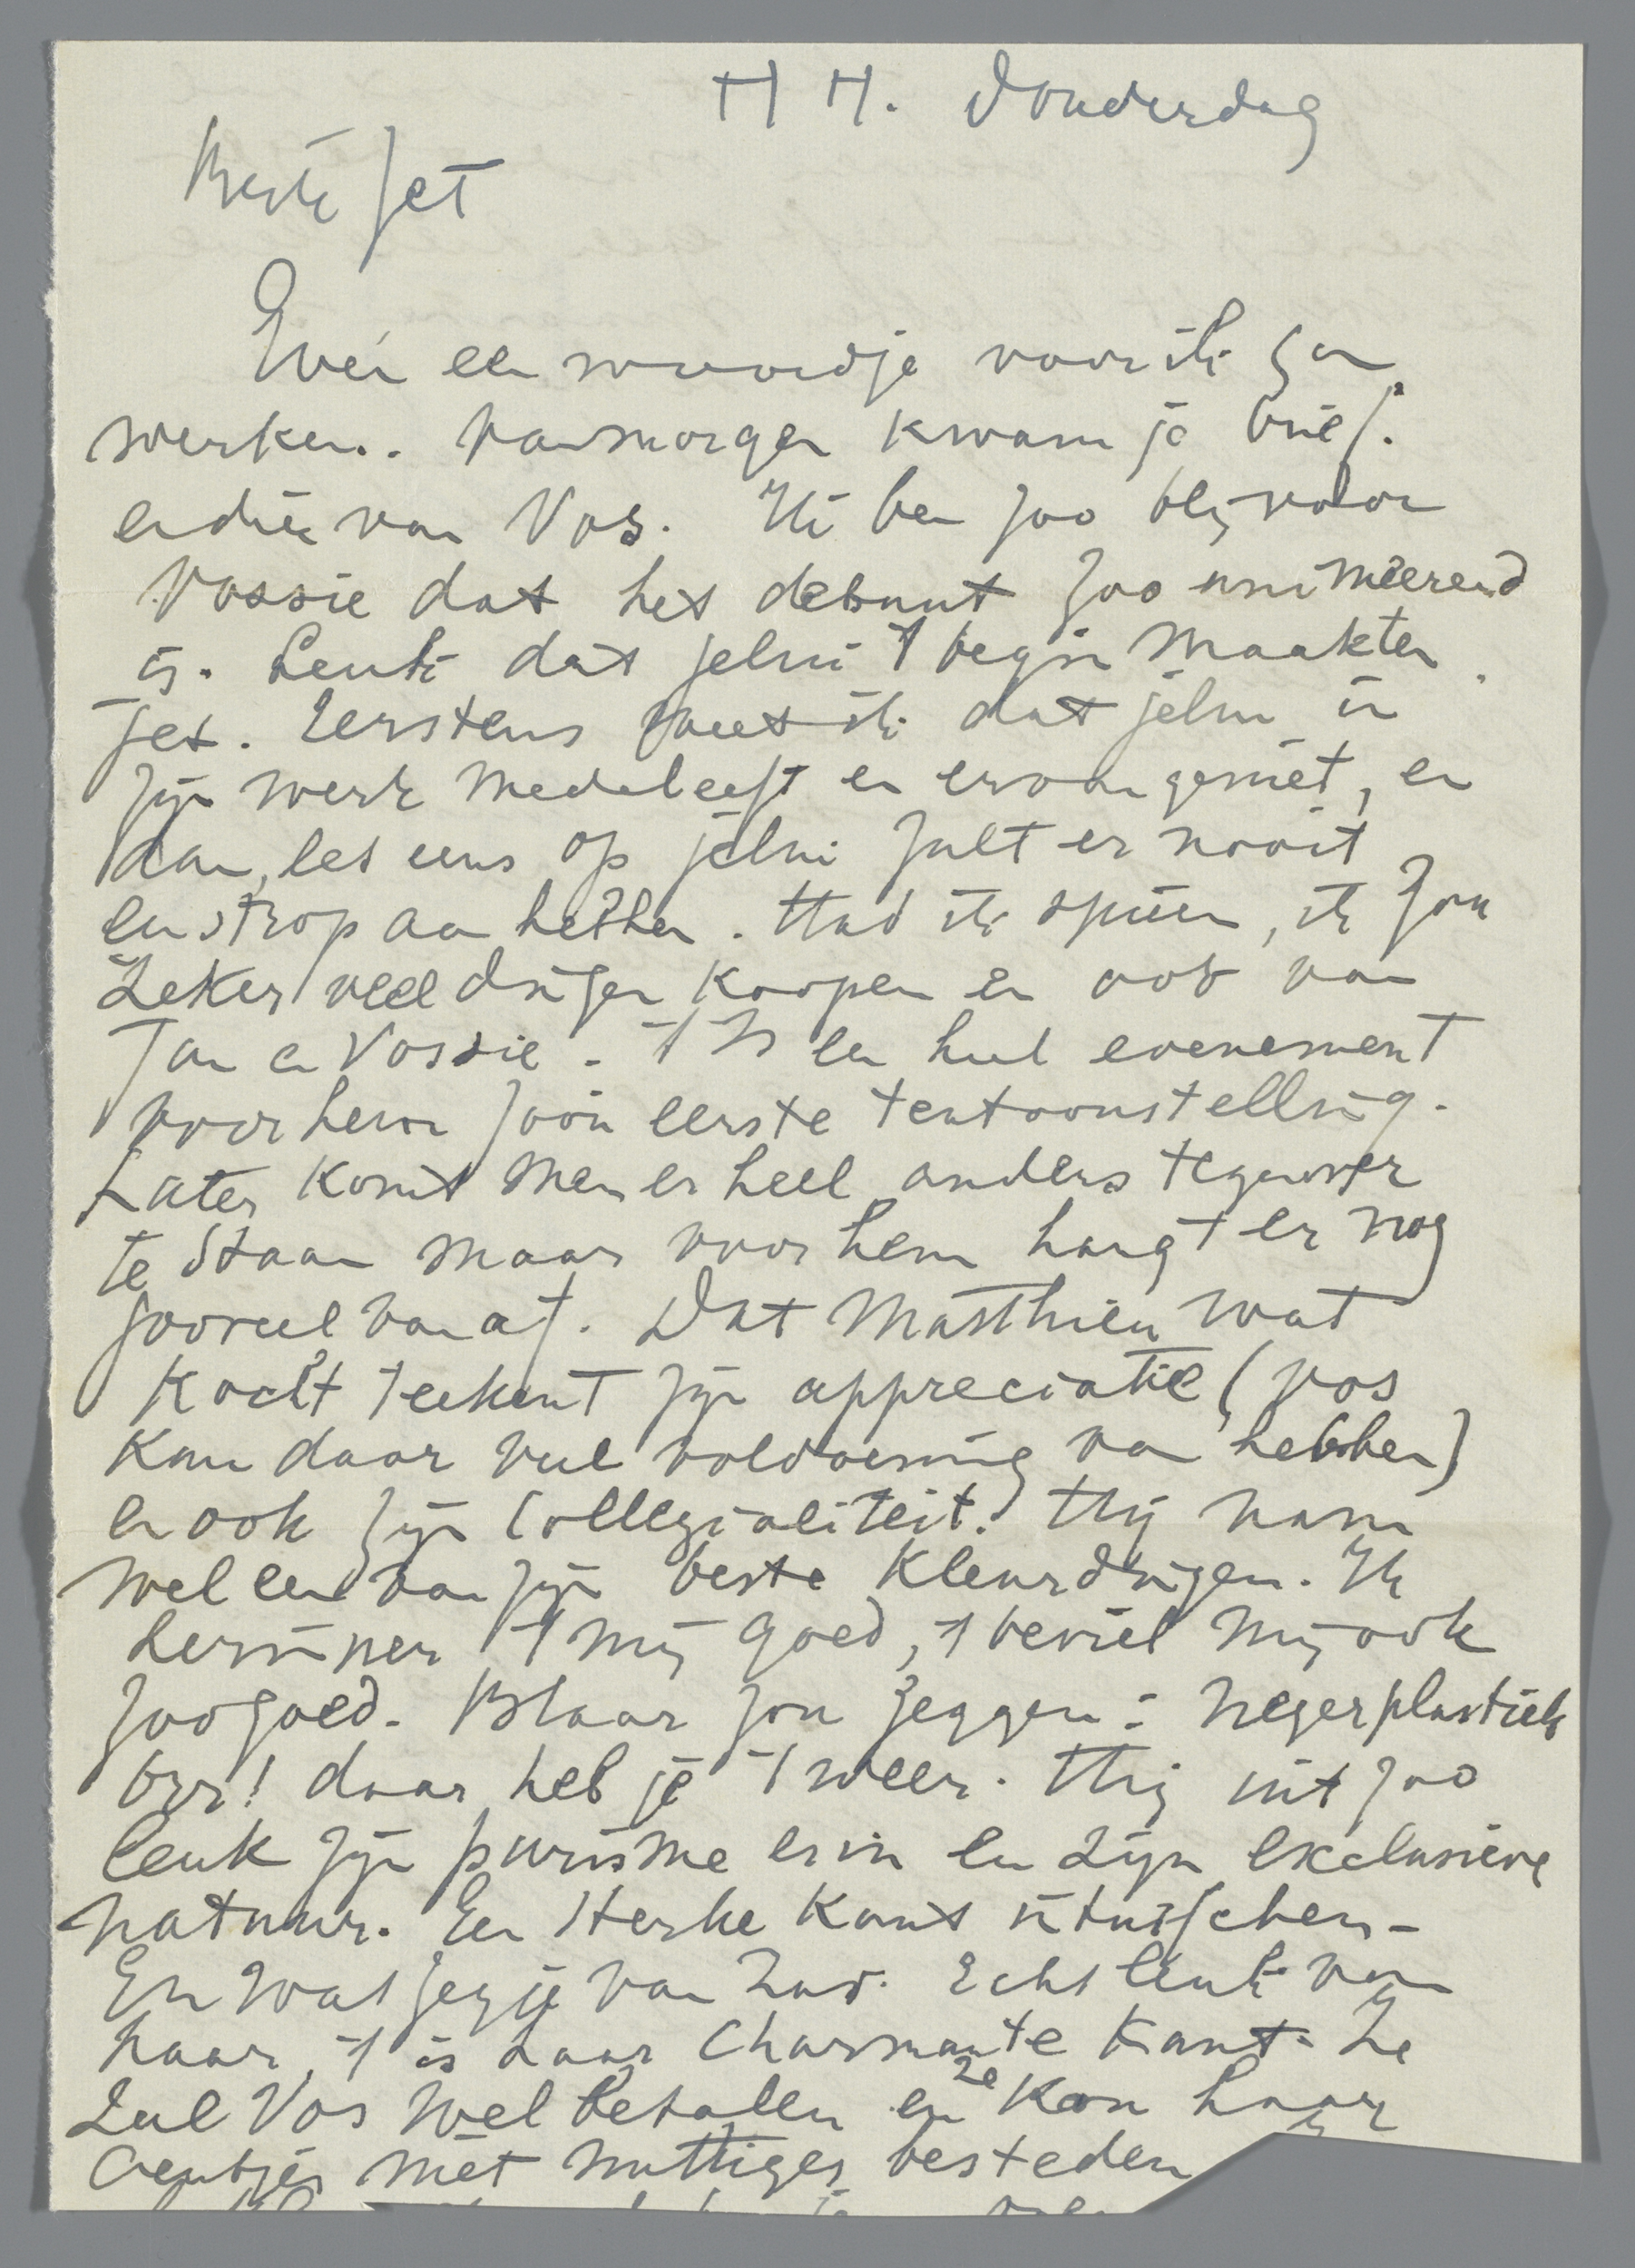 H H. Donderdag
Beste Jet
Even een woordje voor ik ga
werken. Vanmorgen kwam je brief.
en die van Vos. Ik ben zoo blij voor
Vossie dat het debuut zoo animeerend
is. Leuk dat jelui 't begin maakten
Jet. Eerstens weet ik dat jelui in
zijn werk medeleeft en ervan geniet, en
dan, let eens op jelui zult er nooit
een strop aan hebben. Had ik spieën, ik zou
zeker veel dingen koopen en ook van
Jan en Vossie. 't Is een heel evenement
voor hem zoon eerste tentoonstelling.
Later komt men er heel anders tegenover
te staan maar voor hem hangt er nog
zooveel van af. Dat Matthieu wat
kocht teekent zijn appreciatie (Vos
kan daar veel voldoening van hebben)
en ook zijn collegialiteit. Hij nam
wel een van zijn beste kleurdingen. Ik
herinner 't mij goed, 't beviel mij ook
zoo goed. Blaar zou zeggen: negerplastiek
brr! daar heb je 't weer. Hij uit zoo
leuk zijn purisme erin en zijn exclusieve
natuur. Een sterke kant intusschen –
En wat zeg je van Zus. Echt leuk van
haar, 't is haar charmante kant. Ze
zal Vos wel betalen en ze kan haar
centjes niet nuttiger besteden